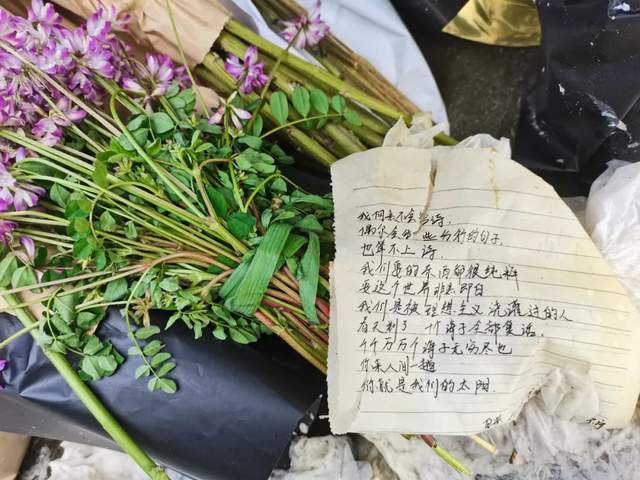 我们来不会写诗,
偶尔会写些分行的句子,
也算不上诗,
我们要的东西都很纯粹
要这个世界非黑即白
我们是被理想主义浇灌过的人
春天到了 一个海子全部复活,
千千万万个海子无穷尽也
你来人间一趟
你就是我们的太阳.